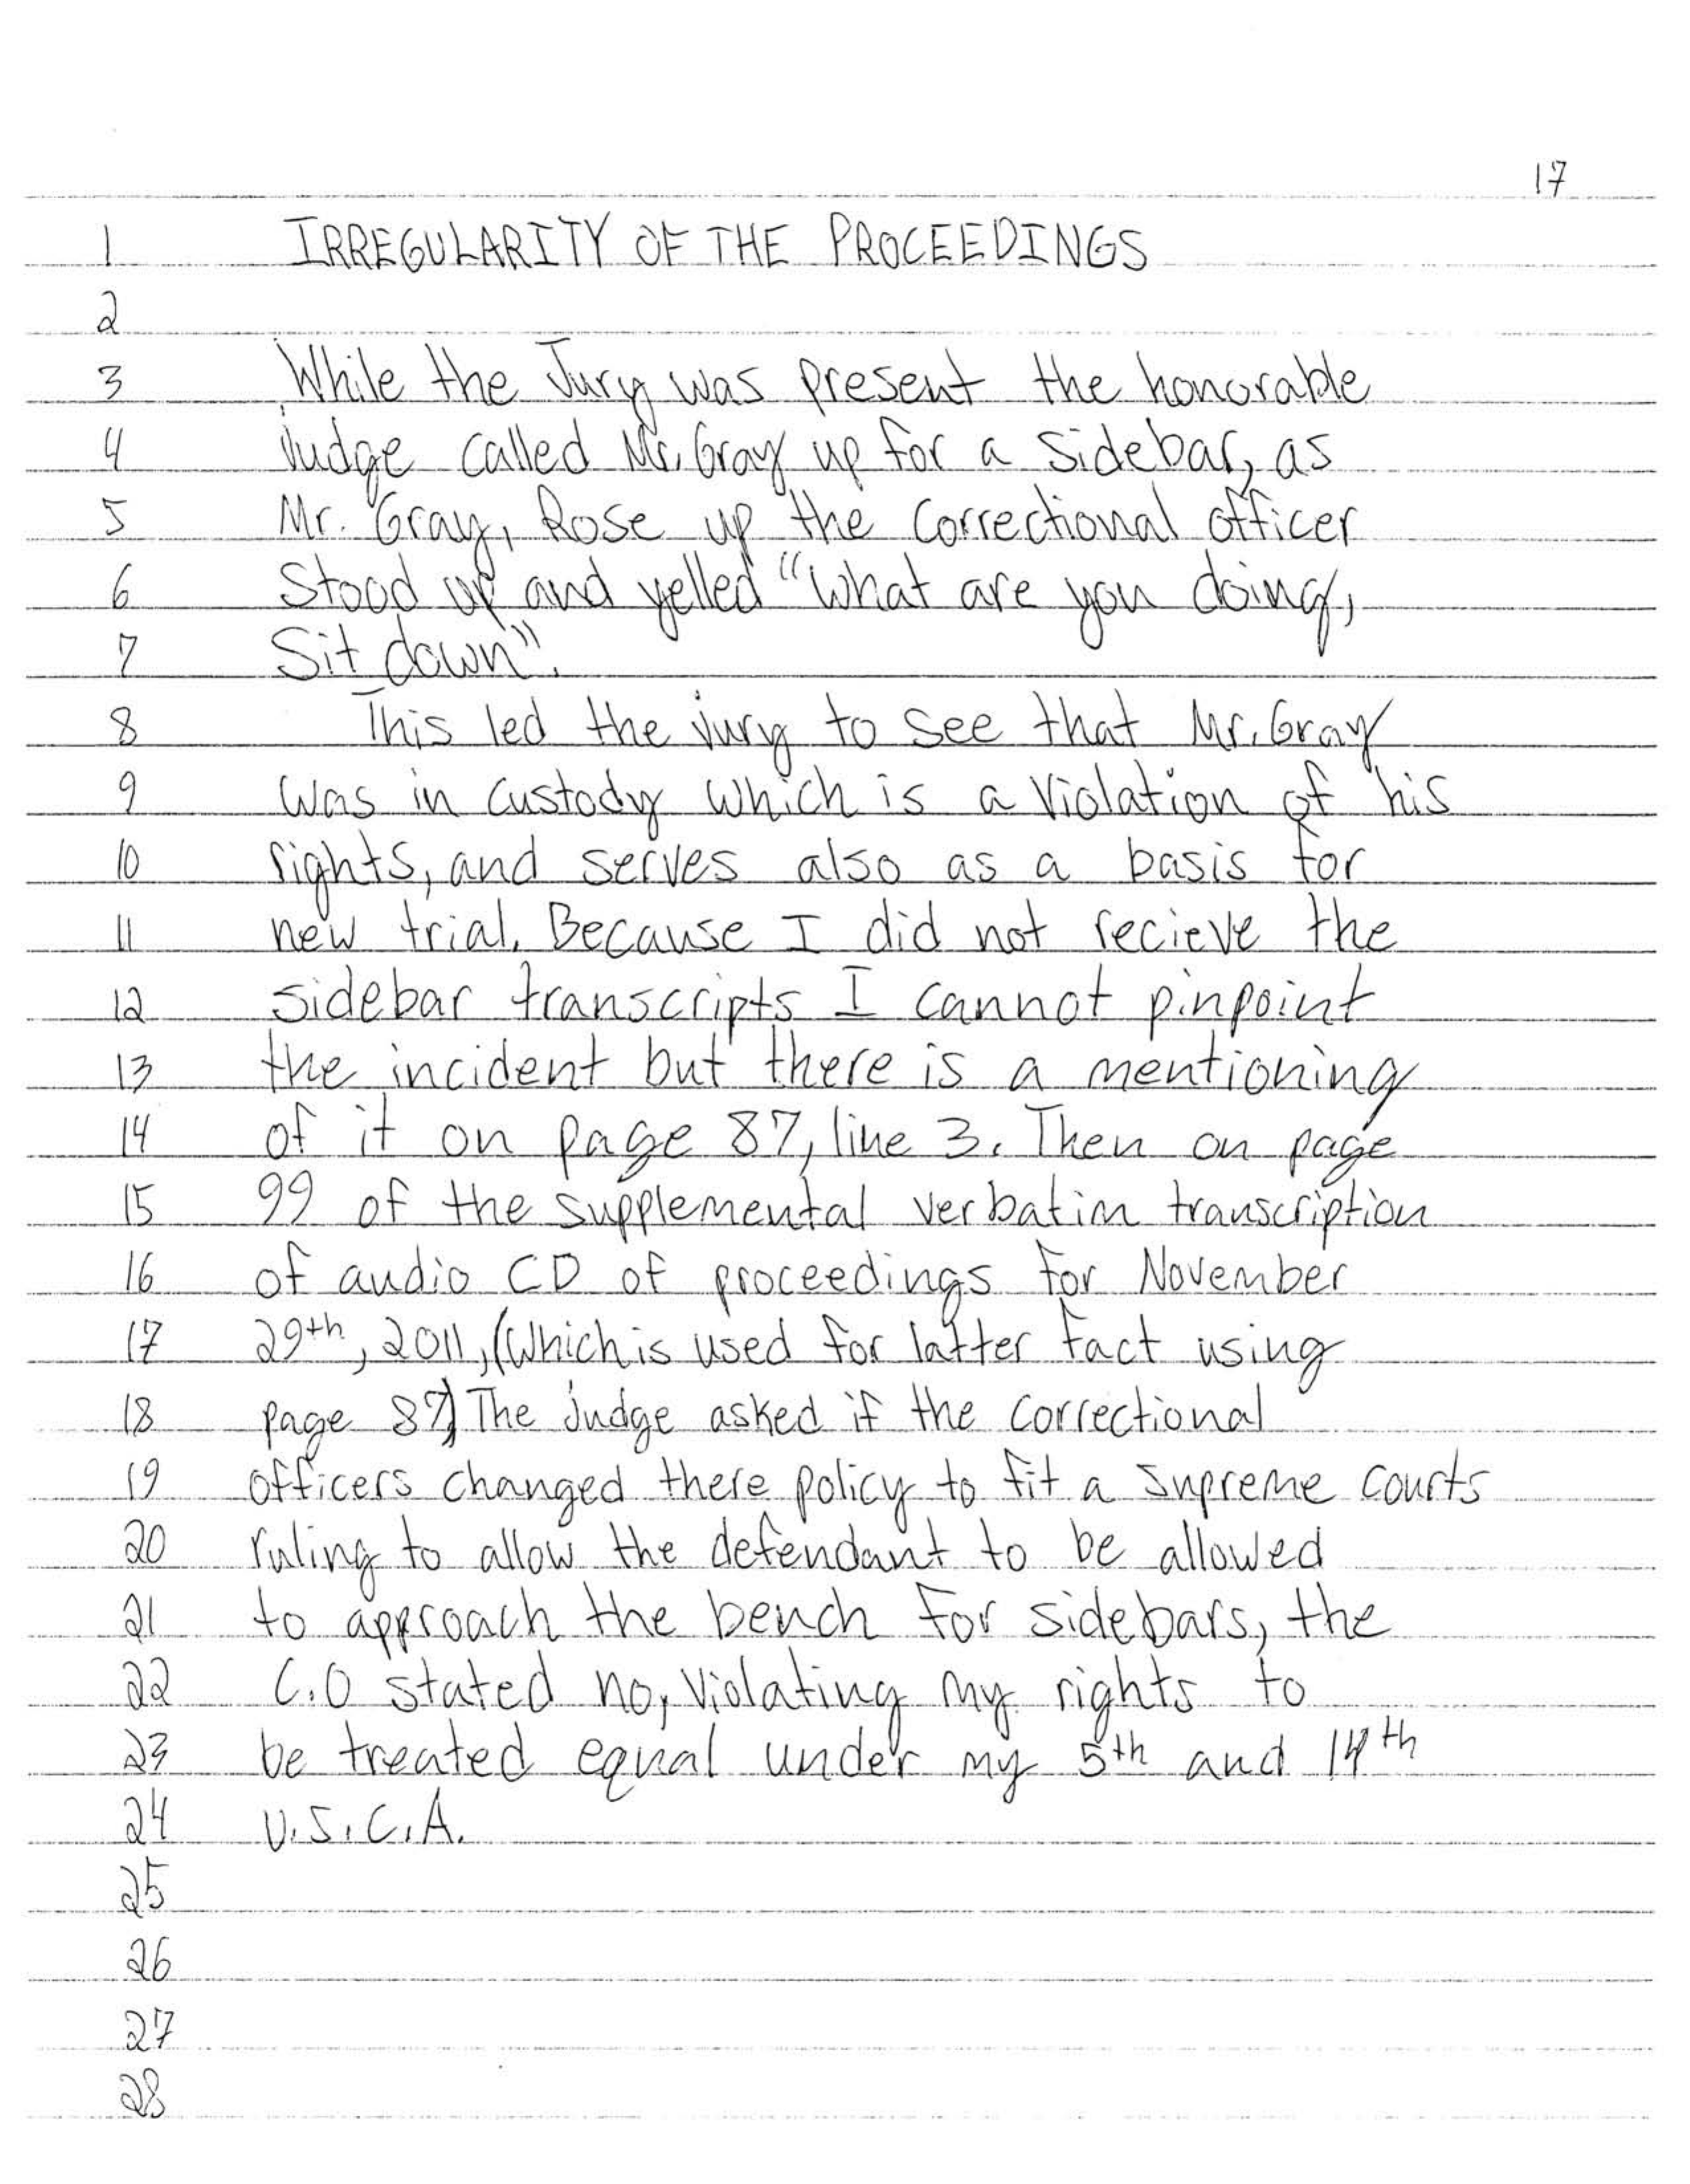 17
1 IRREGULARITY OF THE PROCEEDINGS
2
3 While the Jury was present the honorable
4 Judge called Mr. Gray up for a sidebar, as
5 Mr. Gray, Rose up the Correctional officer
6 Stood up and yelled "What are you doing,
7 Sit down".
8 This led the jury to see that Mr. Gray
9 was in custody which is a violation of his
10 rights, and serves also as a basis for
11 new trial. Because I did not recieve the
12 sidebar transcripts I cannot pinpoint
13 the incident but there is a mentioning
14 of it on page 87, line 3. Then on page
15 99 of the supplemental verbatim transcription
16 of audio CD of proceedings for November
17 29th, 2011, (Which is used for latter fact using
18 page 87) The judge asked if the correctional
19 officers changed there policy to fit a Supreme courts
20 ruling to allow the defendant to be allowed
21 to approach the bench for sidebars, the
22 C.O stated no, violating my rights to
23 be treated equal under my 5th and 14th
24 U.S.C.A.
25
26
27
28